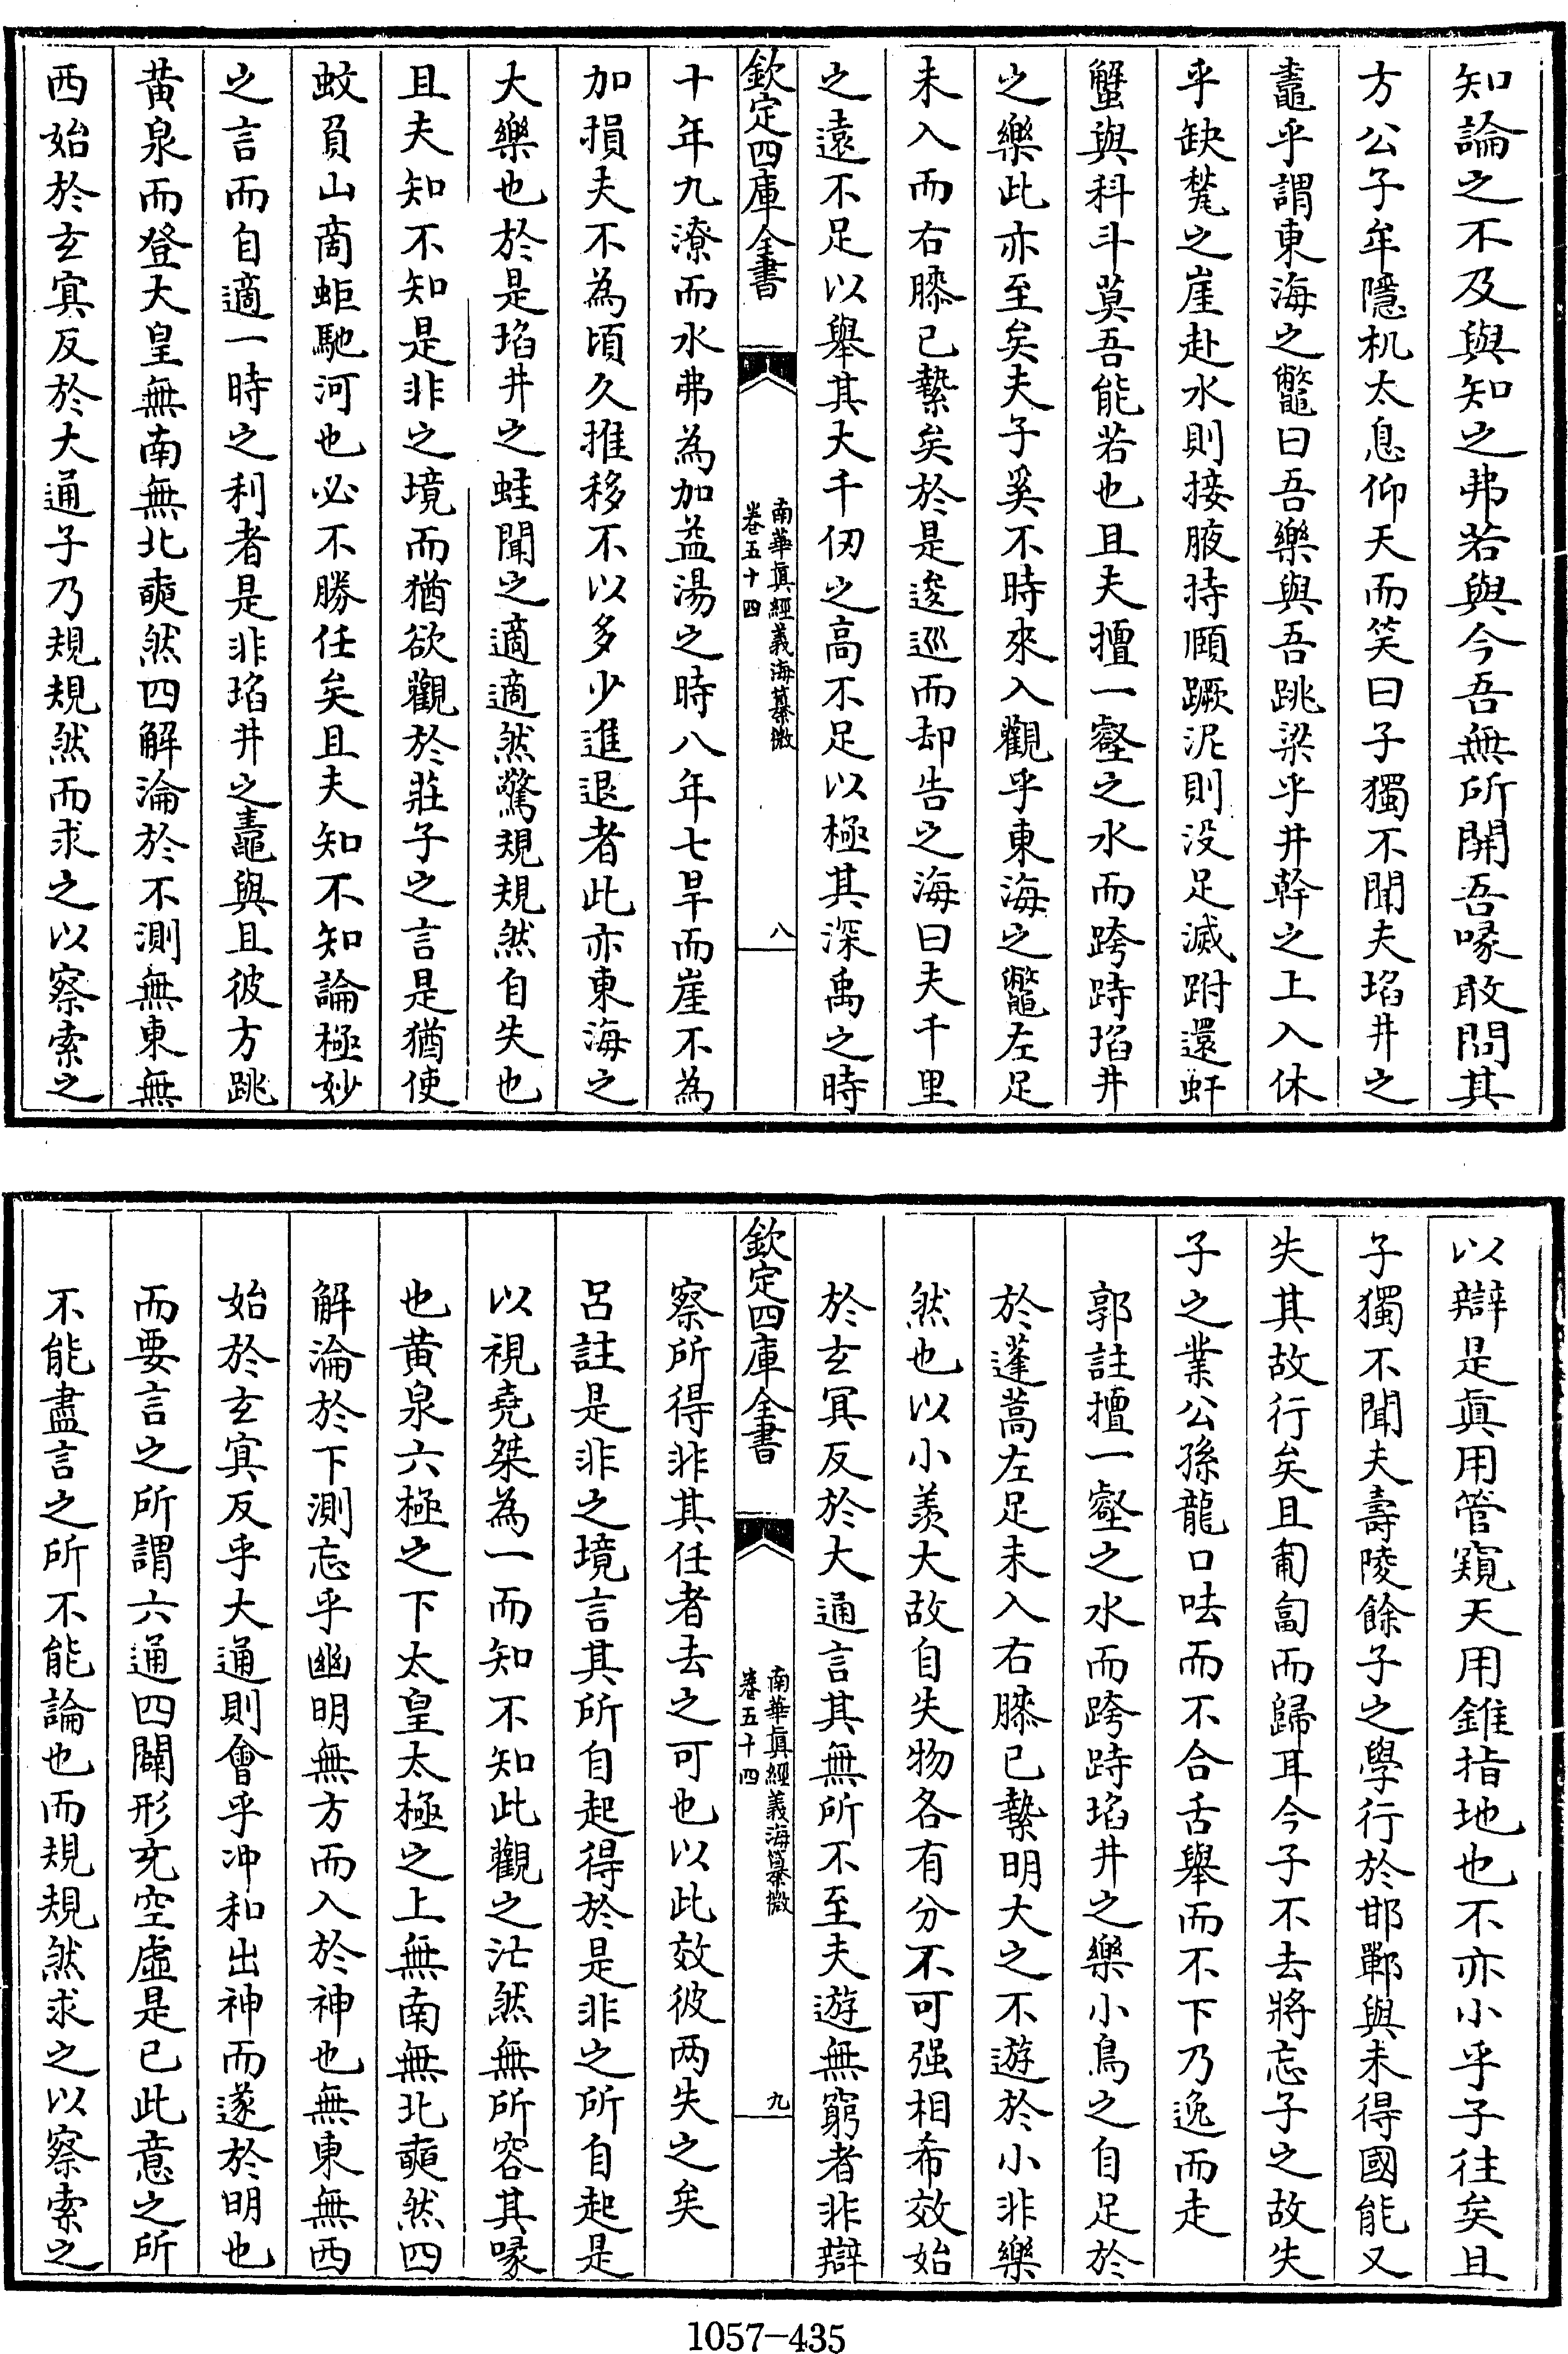 知論之不及與知之弗若與今吾無所開吾喙敢問其
方公子牟隱机太息仰天而笑曰子獨不聞夫埳井之
鼃乎謂東海之鼈曰吾樂與吾跳梁乎井幹之上入休
乎缺甃之崖赴水則接腋持頤蹶泥則没足滅跗還虷
蟹與科斗莫吾能若也且夫擅一壑之水而跨跱埳井
之樂此亦至矣夫子奚不時來入觀乎東海之鼈左足
未入而右膝已縶矣於是逡巡而却告之海曰夫千里
之遠不足以舉其大千仞之高不足以極其深禹之時
欽定四庫全書
南華真經義海纂微
卷五十四
八
十年九潦而水弗為加益湯之時八年七旱而崖不為
加損夫不為頃久推移不以多少進退者此亦東海之
大樂也於是埳井之蛙聞之適適然驚規規然自失也
且夫知不知是非之境而猶欲觀於莊子之言是猶使
蚊負山商蚷馳河也必不勝任矣且夫知不知論極妙
之言而自適一時之利者是非埳井之鼃與且彼方跳
黄泉而登大皇無南無北奭然四解淪於不測無東無
西始於玄冥反於大通子乃規規然而求之以察索之
以辯是真用管窺天用錐指地也不亦小乎子往矣且
子獨不聞夫壽陵餘子之學行於邯鄲與未得國能又
失其故行矣且匍匐而歸耳今子不去將忘子之故失
子之業公孫龍口呿而不合舌舉而不下乃逸而走
郭註擅一壑之水而跨跱埳井之樂小鳥之自足於
於蓬蒿左足未入右膝已縶明大之不遊於小非樂
然也以小羨大故自失物各有分不可强相希效始
於玄冥反於大通言其無所不至夫遊無窮者非辯
欽定四庫全書
南華真經義海纂微
卷五十四
九
察所得非其任者去之可也以此效彼两失之矣
呂註是非之境言其所自起得於是非之所自起是
以視堯桀為一而知不知此觀之茫然無所容其喙
也黄泉六極之下太皇太極之上無南無北奭然四
解淪於下測忘乎幽明無方而入於神也無東無西
始於玄冥反乎大通則會乎冲和出神而遂於明也
而要言之所謂六通四闢形充空虛是已此意之所
不能盡言之所不能論也而規規然求之以察索之
1057-435